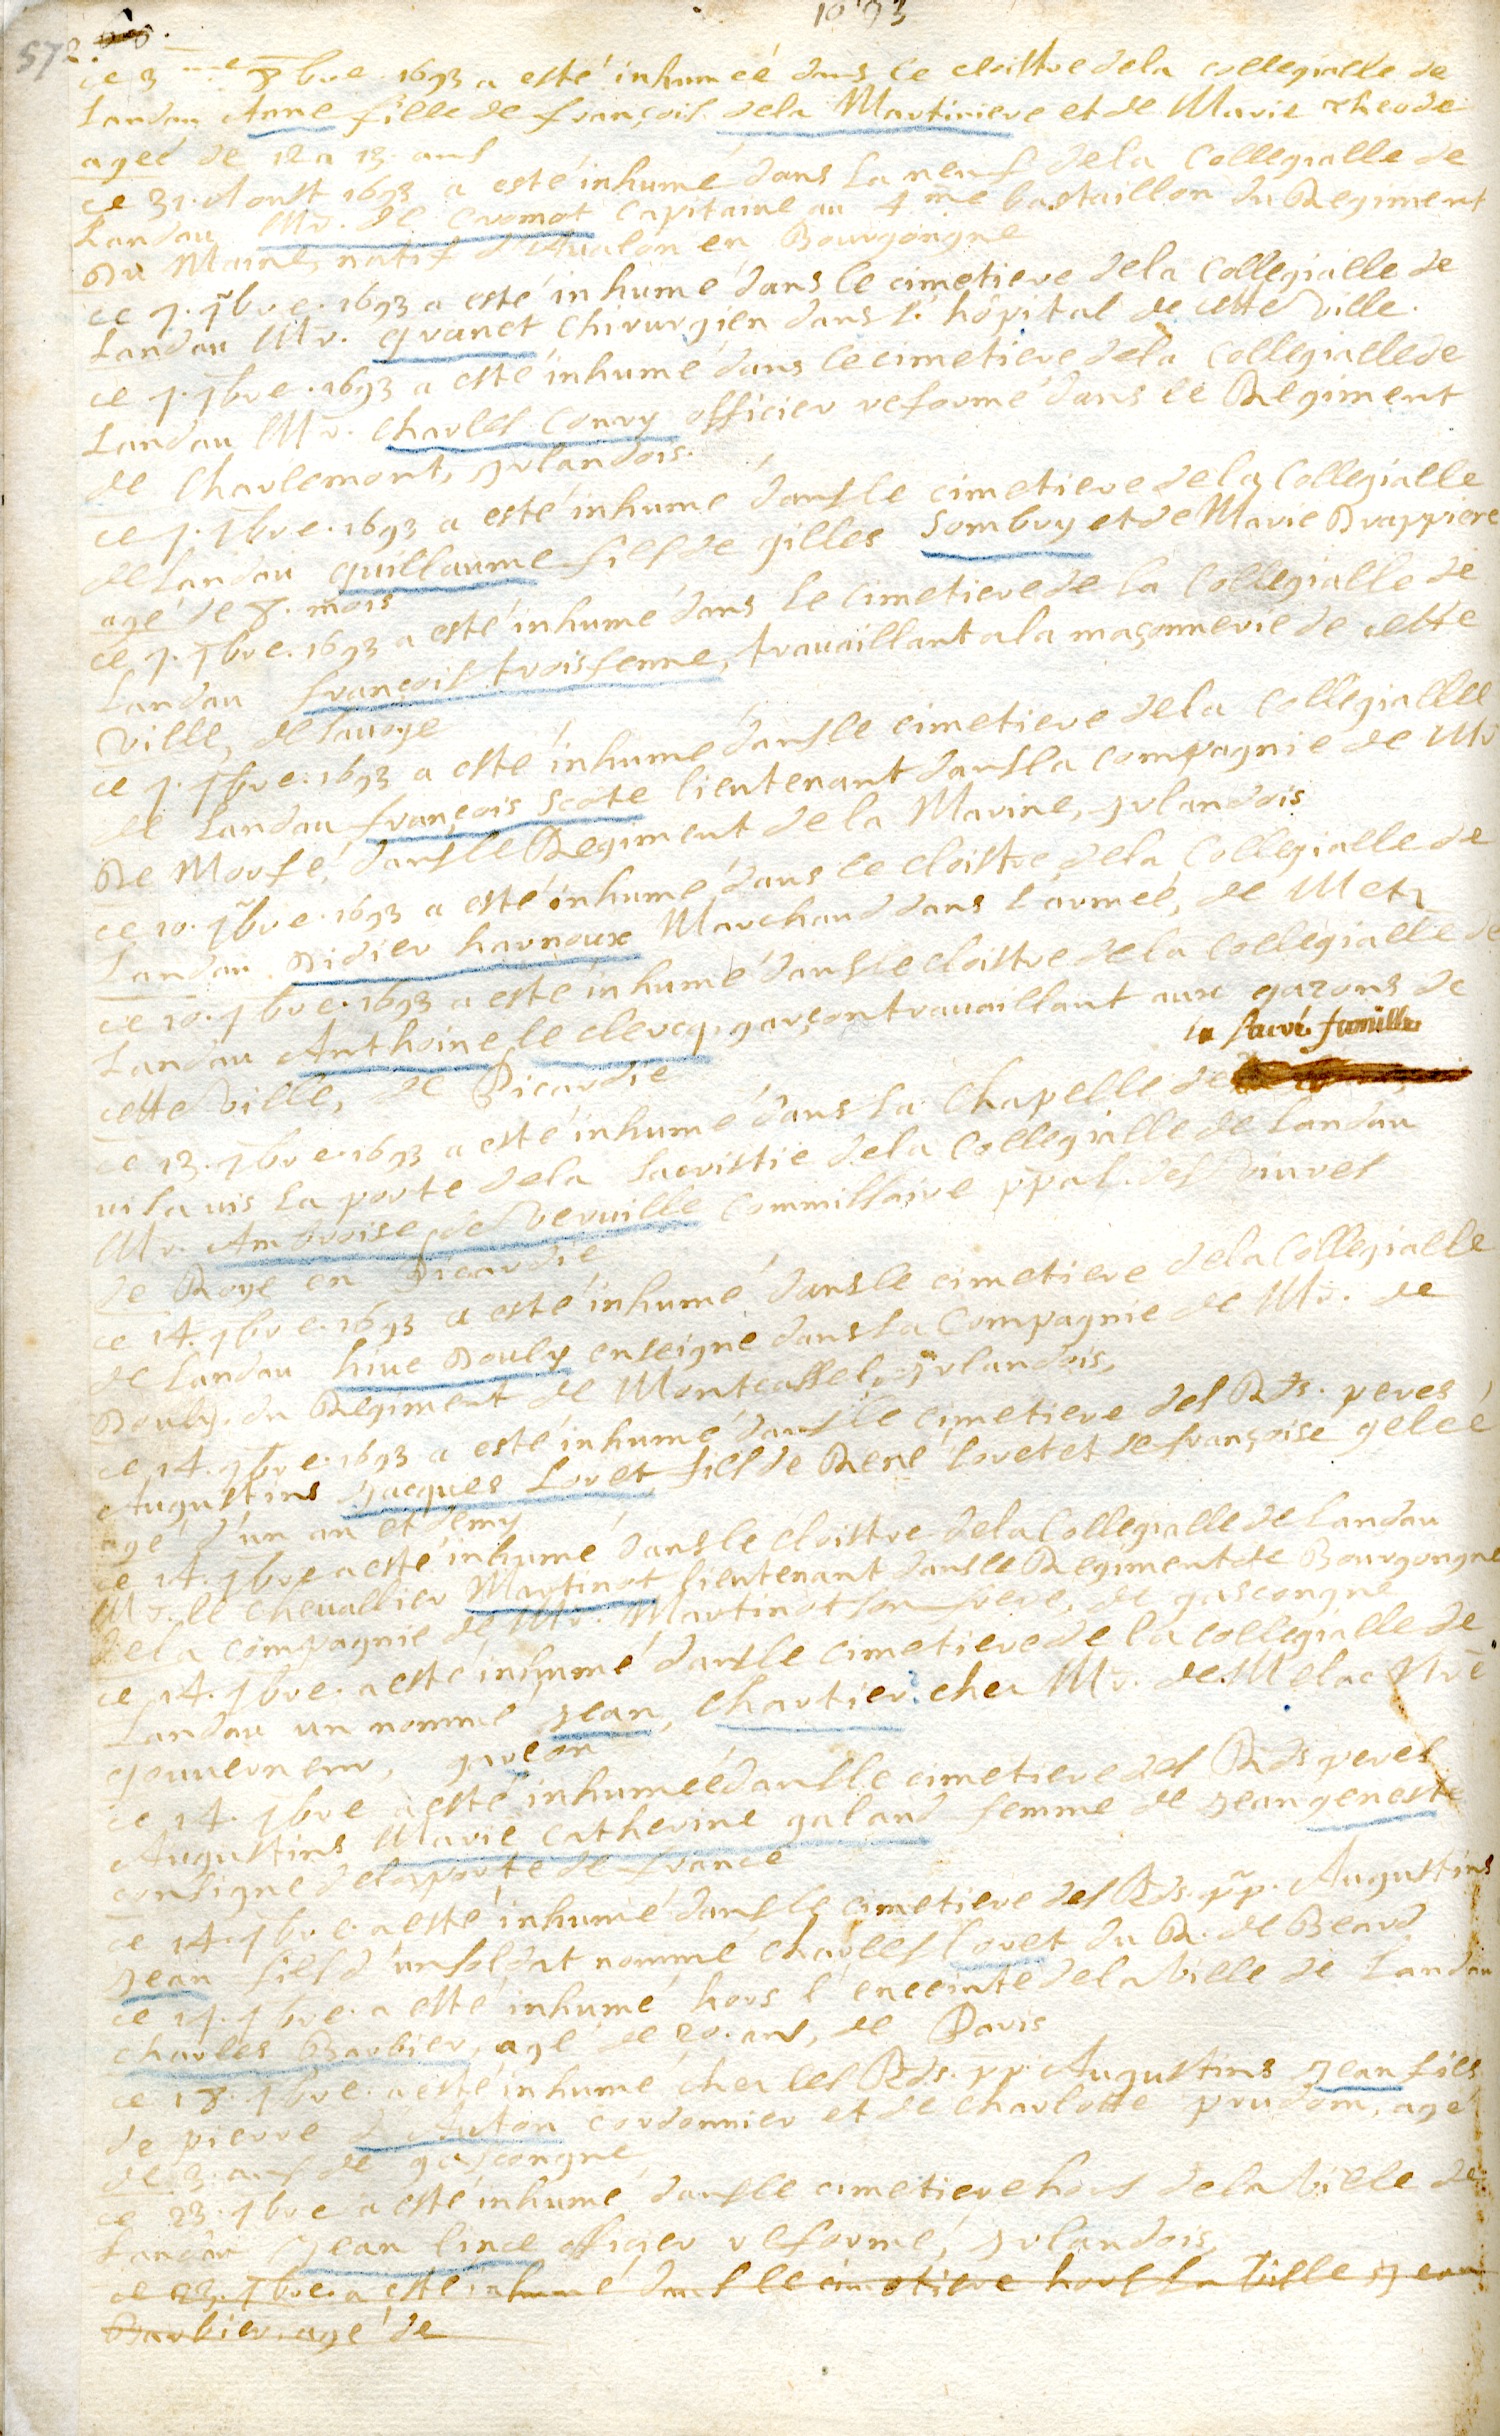 1693
572.
ce 3me 8bre. 1693 a esté inhumeé dans le cloistre dela collegialle de
Landau Anne fille de françois dela Martiniere et de Marie rheode
ageé de 12 a 13. ans
ce 31. Aoust 1693 a esté inhumé dans La neuf dela Collegialle de
Landau Mr. de Cromot Capitaine au 4me bastaillon du Regiment
Du Maine, natif d'Aualon en Bourgongne
ce 7. 7bre. 1693 a esté inhumé dans le cimetiere dela Collegialle de
Landau Mr. granet Chirurgien dans l'hôpital de cette ville.
ce 7. 7bre. 1693 a esté inhumé dans le cimetiere dela Collegialle de
Landau Mr. Charles Conry officier reformé dans le Regiment
de Charlemont, Jrlandois.
ce 7. 7bre. 1693 a esté inhumé dans le cimetiere dela Collegialle
de Landau guillaume fils de gilles Sombry et de Marie Drappiere
agé de 8. mois
ce 7. 7bre. 1693 a esté inhumé dans le cimetiere de la Collegialle de
Landau françois troisfenne, trauaillant ala maçonnerie de cette
Ville, de Sauoye
ce 7. 7bre. 1693 a esté inhumé dans le cimetiere dela Collegialle
de Landau françois Scote lieutenant dans la compagnie de Mr
De Morfé, dans le Regiment de la Marine, Jrlandois
ce 10. 7bre. 1693 a esté inhumé dans le cloistre dela Collegialle de
Landau Didier harnoux Marchand dans l'armeé, de Metz
ce 10. 7bre. 1693 a esté inhumé dans le cloistre de la Collegialle de
Landau Anthoine le clercq, garçon trauaillant aux gazons de
cette Ville, de Picardie
la sacré famille
ce 13. 7bre. 1693 a esté inhumé dans la Chapelle de
uis a uis la porte dela Sacristie dela Collegialle de Landau
Mr. Ambroise de Veruille Commissaire ppal. des Viures
de Roye en Picardie
ce 14. 7bre. 1693 a esté inhumé dans le cimetiere dela Collegialle
de Landau hiue Douly enseigne dans la Compagnie de Mr. de
Douly. du Regiment de Montcassel, Jrlandois,
ce 14. 7bre. 1693 a esté inhumé dans le cimetiere des Rds. peres
Augustins Jacques Loret fils de René loret et de françoise geleé
agé d'un an et demy
ce 14. 7bre a esté inhumé dans le cloistre dela Collegialle de Landau
Mr. le cheuallier Martinot lieutenant dans le Regiment de Bourgongne
dela compagnie de Mr. Martinot son frere, de gascongne
ce 14. 7bre. a esté inhumé dans le cimetiere de la collegialle de
Landau un nommé Jean, Chartier chez Mr. de Melac Nrē
gouuerneur, garçon
ce 14. 7bre a esté inhumeé dans le cimetiere des Rds peres
Augustins Marie Catherine galand femme de Jean geneste
consigne dela porte de france
ce 14. 7bre. a esté inhumé dans le cimetiere des Rds. pp. Augustins
Jean fils d'un soldat nommé Charles Loret du R. de Beard
ce 17. 7bre. a esté inhumé hors l'enceinte dela Ville de Landau
Charles Barbier, agé de 20. ans, de Paris
ce 18. 7bre. a esté inhumé chez les Rds. pp. Augustins Jean fils
de pierre d'Auton cordonnier et de Charlotte prudom, agé
de 3. ans de gascongne
ce 23. 7bre a esté inhumé dans le cimetiere hors dela Ville de
Landau Jean lince officier reformé, Jrlandois
ce 23. 7bre. a esté inhumé dans le cimetiere hors la Ville Jean
Barbier, agé de